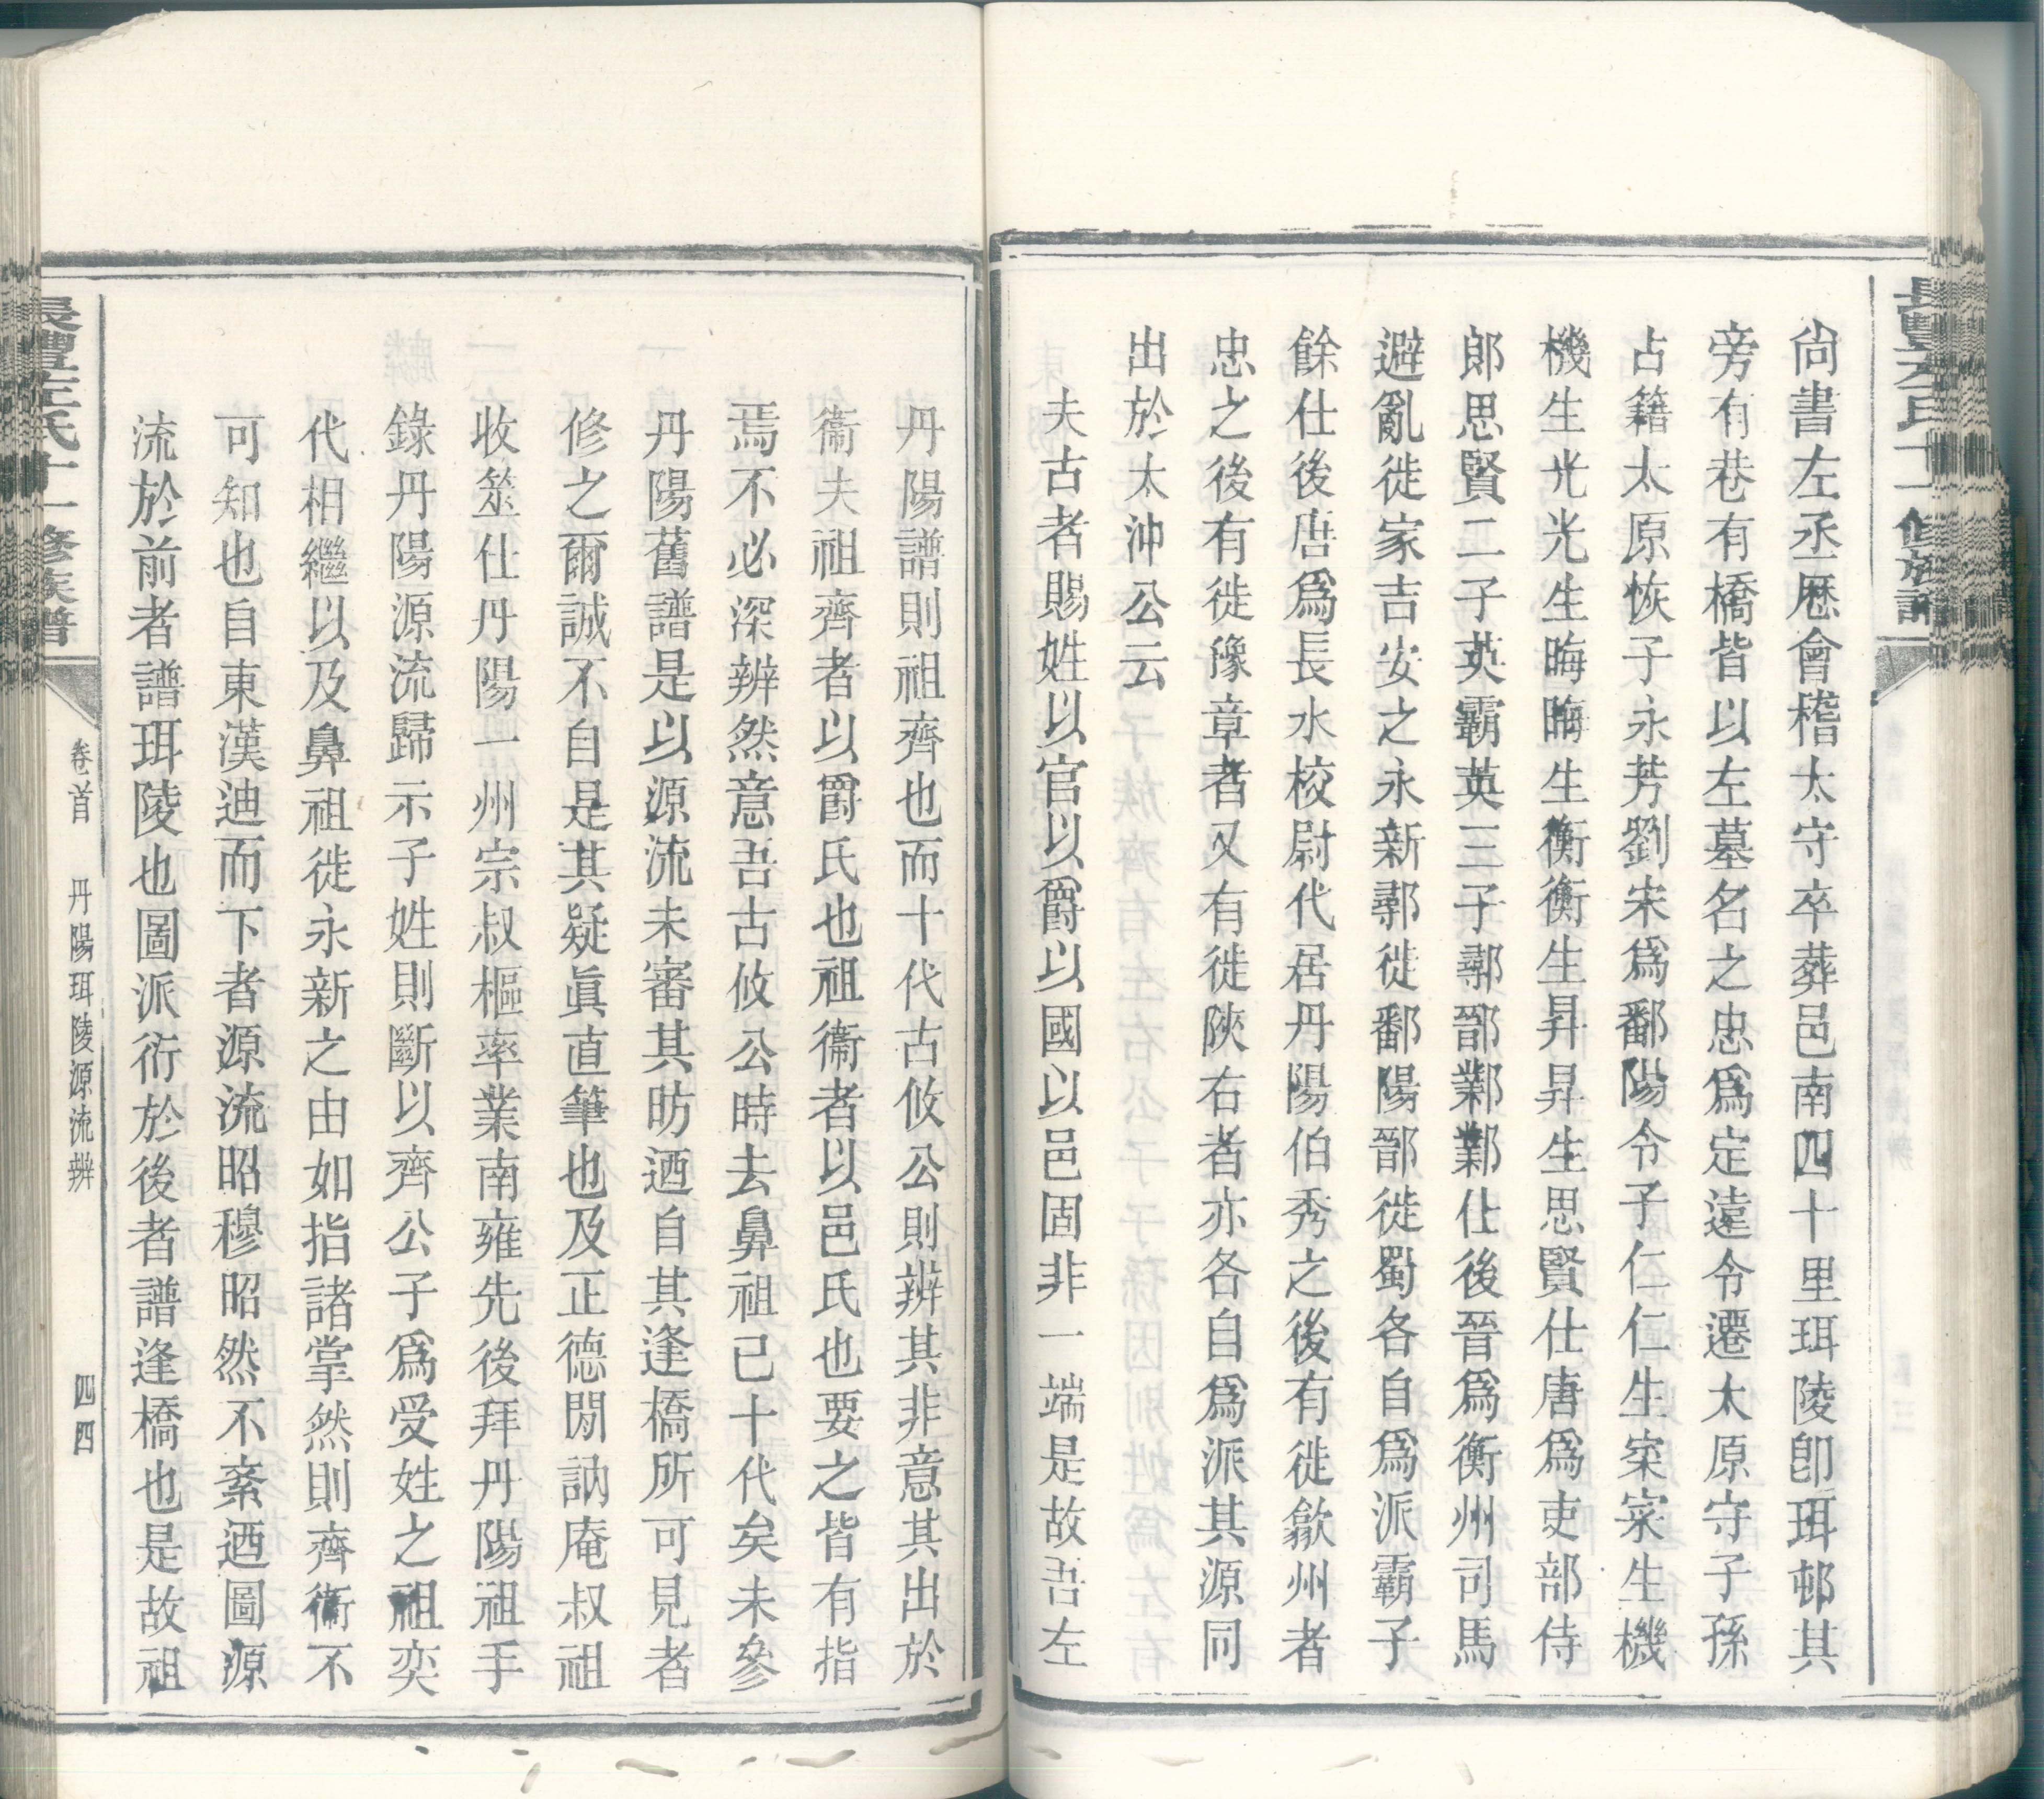 尙書左丞歷會稽太守卒葬邑南四十里珥陵卽珥邨其
旁有巷有橋皆以左墓名之忠爲定遠令遷太原守子孫
占籍太原恢子永芳劉宋爲鄱陽令子仁仁生寀寀生機
機生光光生晦晦生衡衡生昇昇生思賢仕唐爲吏部侍
郎思賢二子英霸英三子鄣鄑鄴鄴仕後晉爲衡州司馬
避亂徙家吉安之永新鄣徙鄱陽鄑徙蜀各自爲派霸子
餘仕後唐爲長水校尉代居丹陽伯秀之後有徙歙州者
忠之後有徙豫章者又有徙陝右者亦各自爲派其源同
出於太沖公云
夫古者賜姓以官以爵以國以邑固非一端是故吾左
丹陽譜則祖齊也而十代古攸公則辨其非意其出於
衞夫祖齊者以爵氏也祖衞者以邑氏也要之皆有指
焉不必深辨然意吾古攸公時去鼻祖已十代矣未參
丹陽舊譜是以源流未審其昉迺自其逢橋所可見者
修之爾誠不自是其疑眞直筆也及正德閒訥庵叔祖
收筮仕丹陽一州宗叔樞率業南雍先後拜丹陽祖手
錄丹陽源流歸示子姓則斷以齊公子爲受姓之祖奕
代相繼以及鼻祖徙永新之由如指諸掌然則齊衞不
可知也自東漢迪而下者源流昭穆昭然不紊迺圖源
流於前者譜珥陵也圖派衍於後者譜逢橋也是故祖
長豐左氏十一修族譜
卷首 丹陽珥陵源流辨 四四